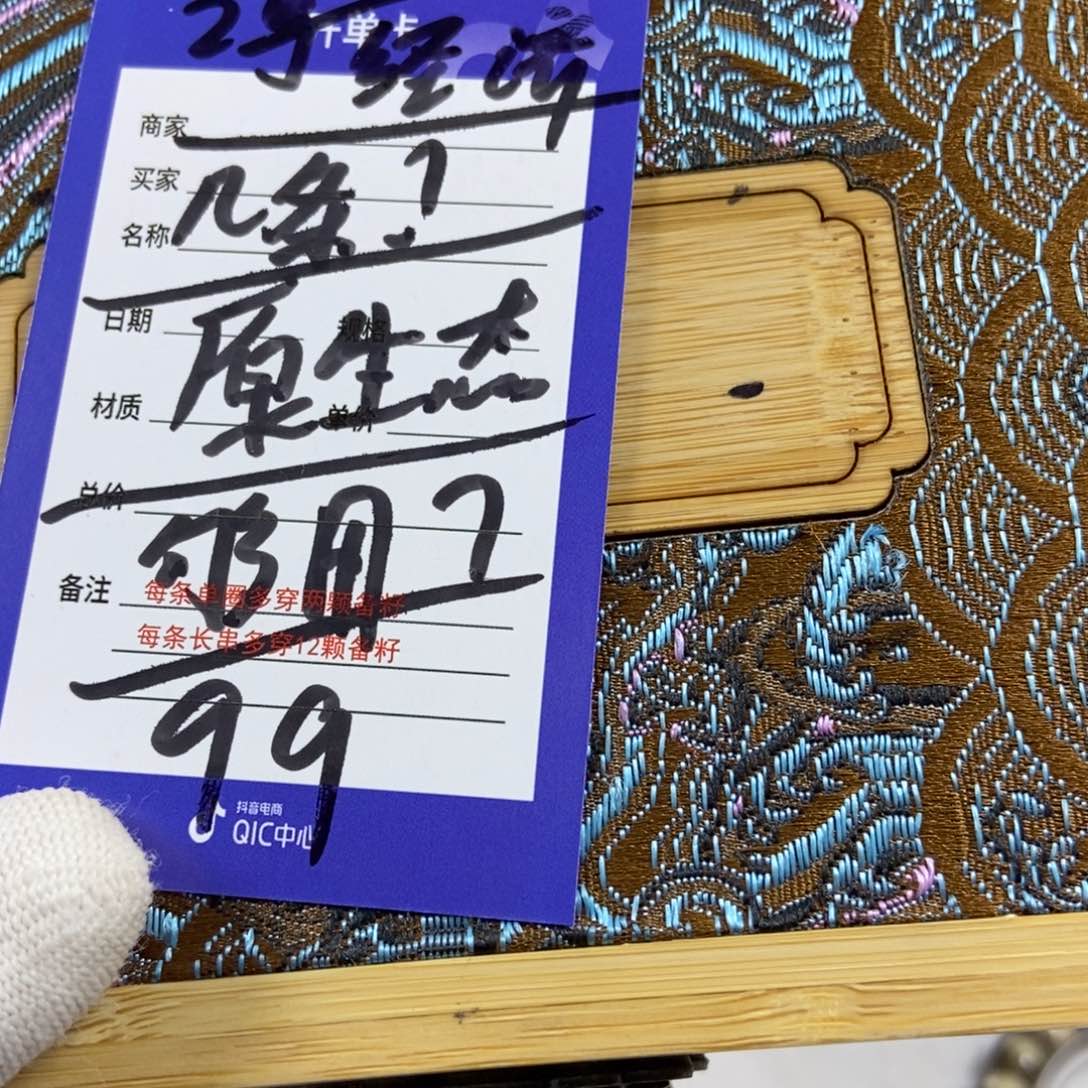 开单卡
2号经济
商家
买家
几条?
名称
日期 规格
原生态
材质 单价
总价
备注 每条单圈多穿两颗备籽
每条长串多穿12颗备籽
99
抖音电商
QIC中心